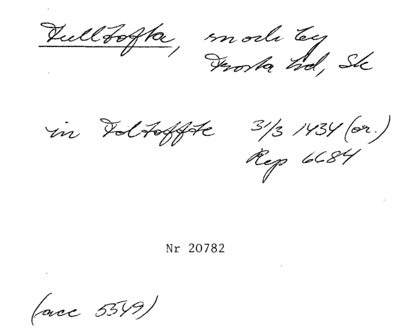 Fulltofta, sn och by
Frosta hd, Sk
in Foltoffte 31/3 1434 (or.)
Rep 6684
Nr 20782
(acc 5549)